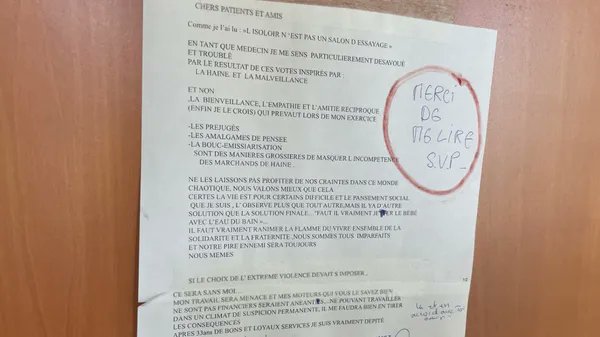 CHERS PATIENTS ET AMIS
Comme je l'ai lu : «L ISOLOIR N 'EST PAS UN SALON D ESSAYAGE »
EN TANT QUE MEDECIN JE ME SENS PARTICULIEREMENT DESAVOUE
ET TROUBLÉ
PAR LE RESULTAT DE CES VOTES INSPIRÉS PAR :
LA HAINE. ET LA MALVEILLANCE
ET NON
,LA BIENVEILLANCE, L'EMPATHIE ET L'AMITIE RECIPROQUE
(ENFIN JE LE CROIS) QUI PREVAUT LORS DE MON EXERCICE
-LES PREJUGÉS
-LES AMALGAMES DE PENSEE
-LA BOUC-EMISSIARISATION
SONT DES MANIERES GROSSIERES DE MASQUER L INCOMPETENCE
DES MARCHANDS DE HAINE .
MERCI
DE
ME LIRE
S.V.P_
NE LES LAISSONS PAS PROFITER DE NOS CRAINTES DANS CE MONDE
CHAOTIQUE, NOUS VALONS MIEUX QUE CELA
CERTES LA VIE EST POUR CERTAINS DIFFICILE ET LE PANSEMENT SOCIAL
QUE JE SUIS , L' OBSERVE PLUS QUE TOUT AUTRE,MAIS IL YA D'AUTRE
SOLUTION QUE LA SOLUTION FINALE... "FAUT IL VRAIMENT JETER LE BÉBÉ
AVEC L'EAU DU BAIN »...
IL FAUT VRAIMENT RANIMER LA FLAMME DU VIVRE ENSEMBLE DE LA
SOLIDARITE ET LA FRATERNITE ,NOUS SOMMES TOUS IMPARFAITS
ET NOTRE PIRE ENNEMI SERA TOUJOURS
NOUS MEMES
SI LE CHOIX DE L' EXTREME VIOLENCE DEVAIT S IMPOSER ,
CE SERA SANS MOI....
MON TRAVAIL SERA MENACE ET MES MOTEURS QUI VOUS LE SAVEZ BIEN
NE SONT PAS FINANCIERS SERAIENT ANEANTIS...NE POUVANT TRAVAILLER
DANS UN CLIMAT DE SUSPICION PERMANENTE, IL ME FAUDRA BIEN EN TIRER
LES CONSEQUENCES
APRES 33ans DE BONS ET LOYAUX SERVICES JE SUIS VRAIMENT DEPITÉ